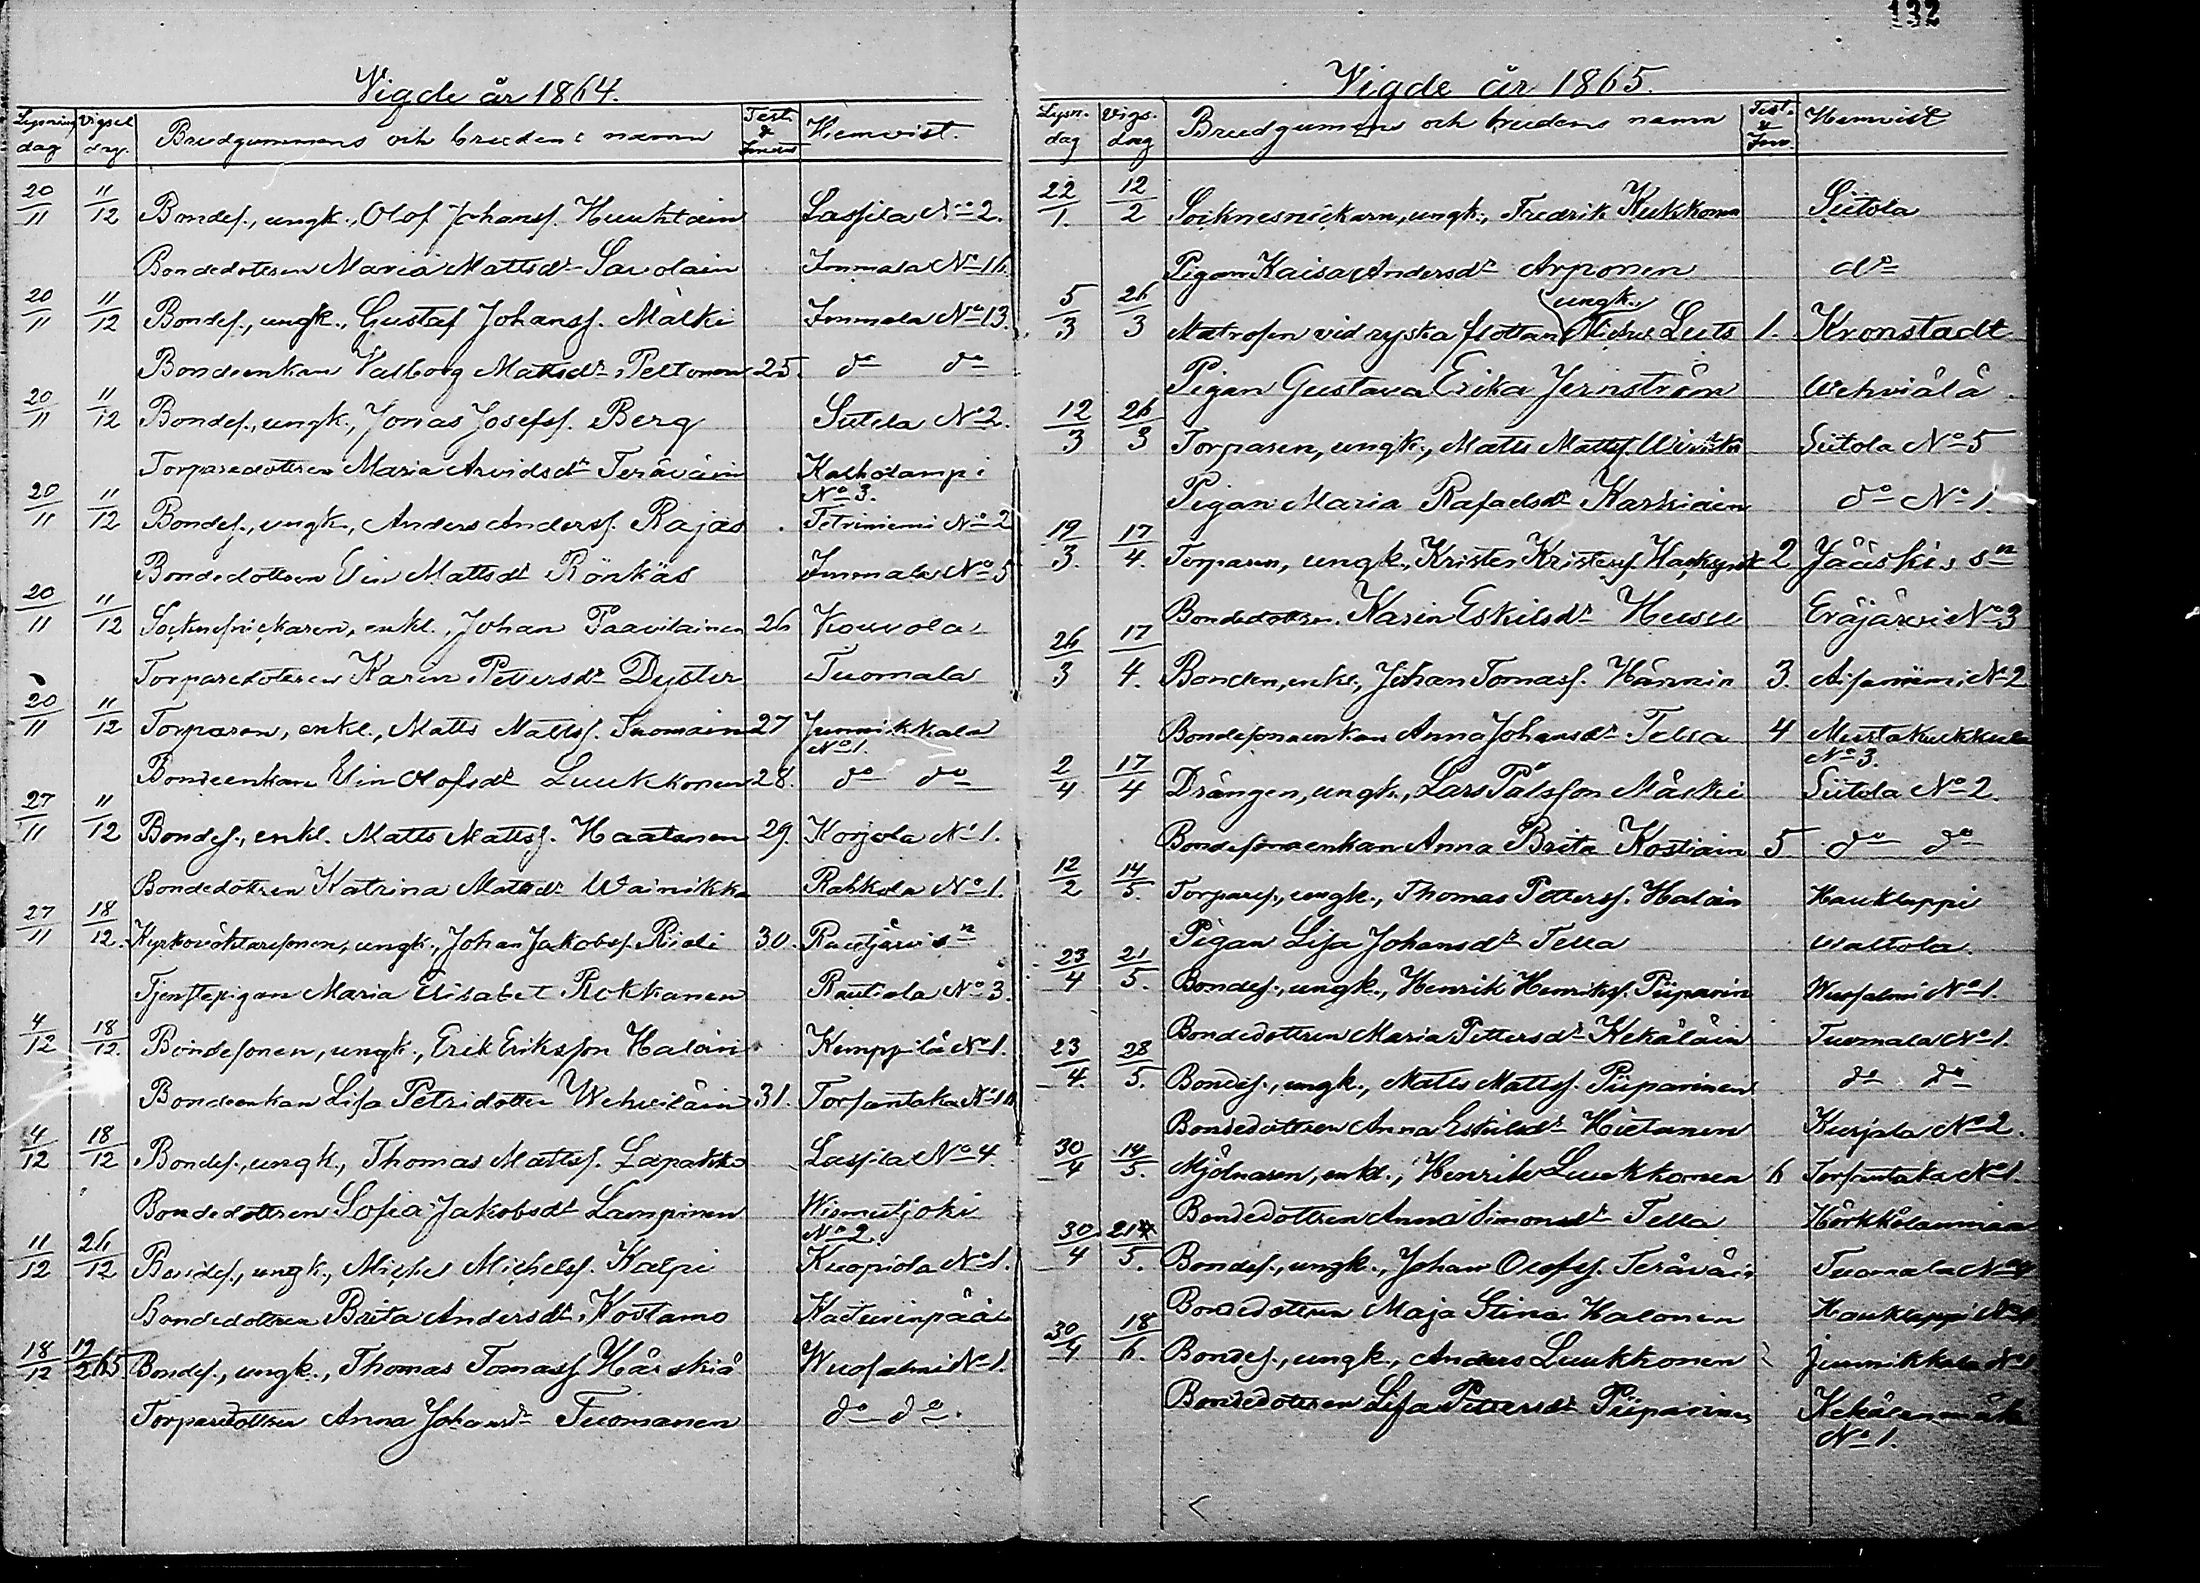 132
Vigde år 1864.
Lysning dag Vigsel dag. Brudgummens och brudens namn Test. & Invent Hemvist.
20/11 11/12 Bondes., ungk., Olof Johanss. Huuhtain Lassila No 2.
Bondedottren Maria Mattsdr Savolain Immala No 16.
20/11 11/12 Bondes., ungk., Gustaf Johanss. Mälki Immala No 13.
Bondeenkan Valborg Mattsdr Peltonen 25. do do
20/11 11/12 Bondes., ungk., Jonas Josefss. Berg Siitola No 2.
Torparedottren Maria Arvidsdr Teräväin Kalholampi
No 3.
20/11 11/12 Bondes., ungk., Anders Anderss. Rajas Tetriniemi No 2
Bondedottren Elin Mattsdr Rönkäs Immala No 5
20/11 11/12 Sockensnickaren, enkl., Johan Paavilainen 26 Kouvola
Torparedottren Karin Pettersdr Dyster Tuomala
20/11 11/12 Torparen, enkl., Matts Mattss. Tuomain 27 Junnikkala
No 1.
Bondeenkan Elin Olofsdr Luukkonen 28. do do
27/11 11/12 Bondes., enkl. Matts Mattss. Haatanen 29. Korjola No 1.
Bondedottren Katrina Mattsdr Wainikka Rahkola No 1.
27/11 18/12. Kyrkovaktaresonen, ungk., Johan Jakobss. Riidi 30. Rautjärvi sn
Tjenstepigan Maria Elisabet Rokkanen Rautiala No 3.
4/12 18/12. Bondesonen, ungk., Erik Eriksson Haloin Kemppilä No 1.
Bondeenkan Lisa Petridotter Wehviläin 31. Torsantaka No 16
4/12 18/12 Bondes., ungk., Thomas Mattss. Lapakko Lassila No 4.
Bondedottren Sofia Jakobsdr Lampinen Wirmutjoki
No 2.
11/12 26/12 Bondes., ungk., Michel Michelss. Kalpi Kuopiola No 1.
Bondedottren Brita Andersdr Kostamo Katurinpää
18/12 12/2 65 Bondes., ungk., Thomas Tomass. Härskiä Wuosalmi No 1.
Torparedottren Anna Johansdr Tuomanen do do.
Vigde år 1865.
Lysn. dag Vigs. dag Brudgummens och brudens namn Test. & Inv. Hemvist
22/1. 12/2 Socknesnickarn, ungk., Fredrik Kukkonen Siitola
Pigan Kaisa Andersdr Arponen do
ungk.,
5/3 26/3 Matrosen vid ryska flottan Michel Luts 1. Kronstadt
Pigan Gustava Erika Jernström Wehviälä.
12/3 26/3 Torparen, ungk., Matts Mattss. Siitola No 5
Pigan Maria Rafaelsdr Karhiain do No 1.
19/3. 17/4. Torparen, ungk., Krister Kristerss. 2 Jääskis sn
Bondedottren Karin Eskilsdr Heusu Eräjärvi No 3
26/3 17/4. Bonden, enkl., Johan Tomass. Hännin 3. No 2
Bondesonaenkan Anna Johansdr Tella 4 Mustakukkula
No 3.
2/4 17/4 Drängen, ungk., Lars Pålsson Mälki Siitola No 2.
Bondesonaenkan Anna Brita Kostiain 5 do do
12/2 14/5. Torpares., ungk., Thomas Petterss. Haloin Haukluppi
Pigan Lisa Johansdr Tella Waltola.
23/4 21/5. Bondes., ungk., Henrik Henrikss. Piiparin Wuosalmi No 1.
Bondedottren Maria Pettersdr Kekäläin Tuomala No 1.
23/4. 28/5. Bondes., ungk., Matts Mattss. Piiparinen do do
Bondedottren Anna Eskilsdr Hietanen Kurjala No 2.
30/4 14/5. Mjölnaren, enkl., Henrik Luukkonen 6 Torsantaka No 1.
Bondedottren Anna Simonsdr Tella
30/4 21/5. Bondes., ungk., Johan Olofss. Teräväin Tuomala No 4
Bondedottren Maja Stina Halonen Haukluppi No 1
30/4 18/6. Bondes., ungk., Anders Luukkonen Junnikkala No 1
Bondedottren Lisa Pettersdr Piiparinen Kekälenmäki
No 1.